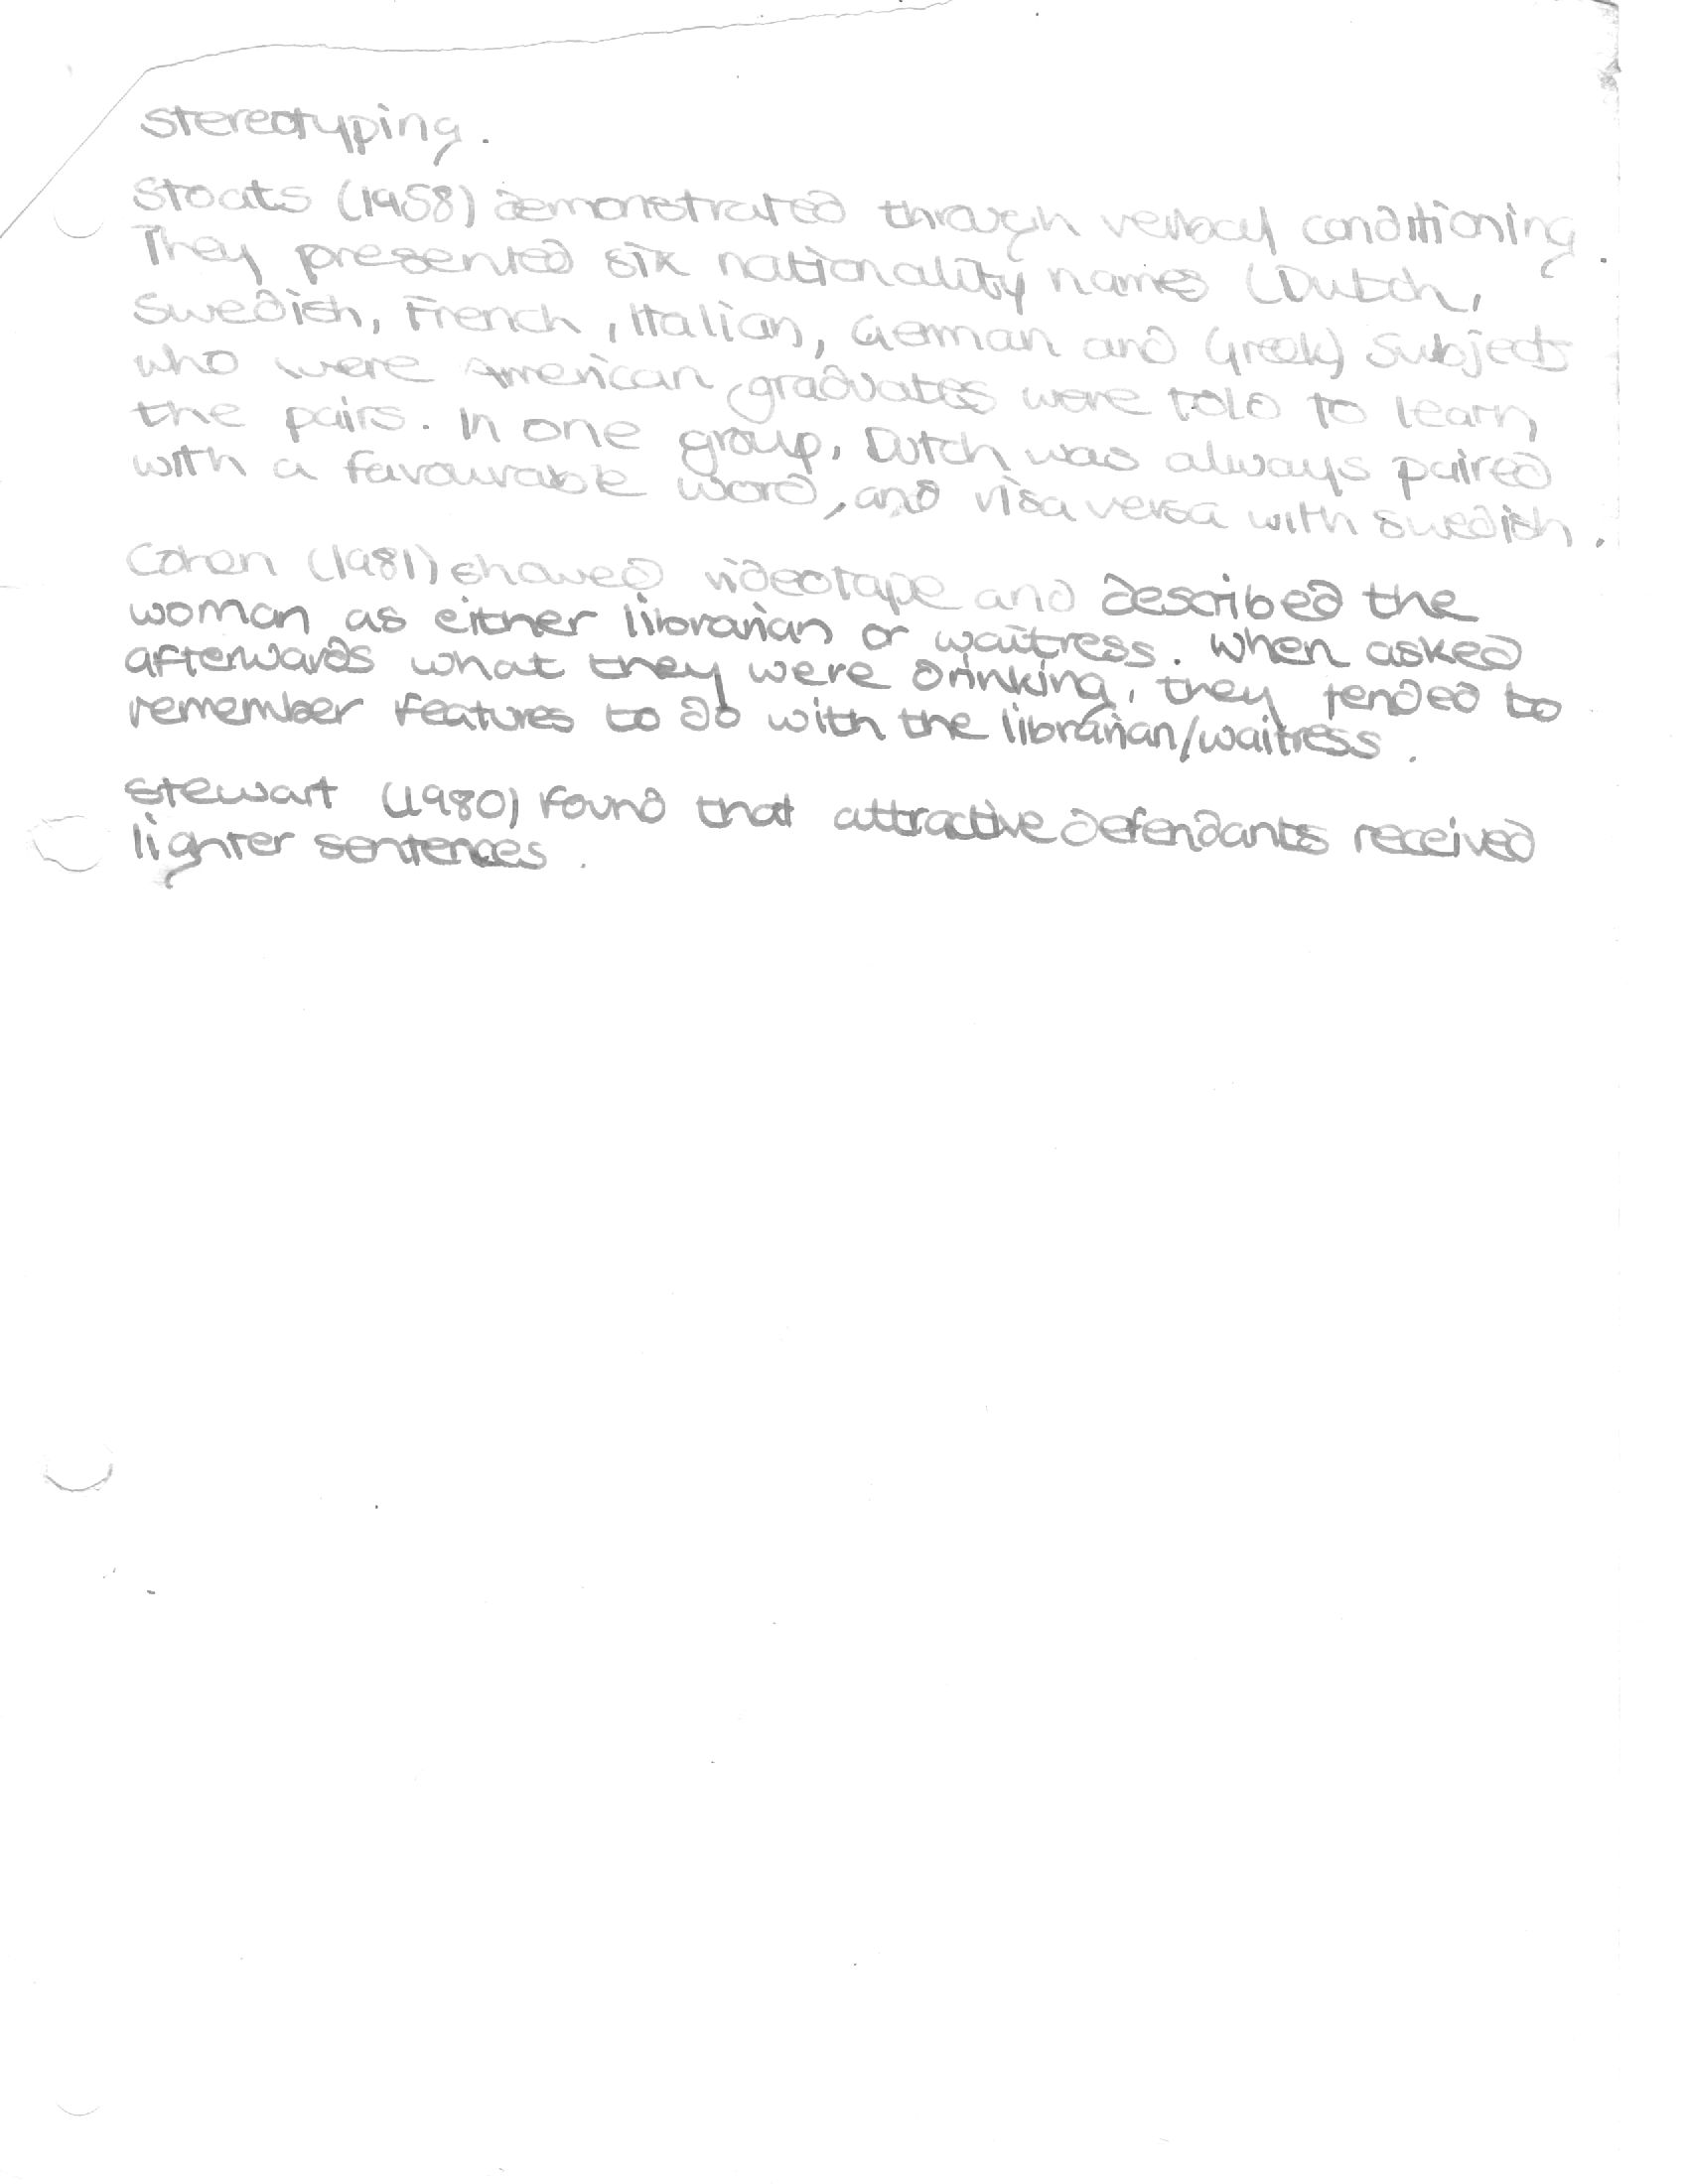 stereotyping.
Stoats (1958) demonstrated through verbal conditioning.
They presented six nationality names (Dutch,
Swedish, French, Italian, German and Greek) Subjects
who were American graduates were told to learn
the pairs. In one group, Dutch was always paired
with a favourable word, and visa versa with swedish.
Cohen (1981) showed videotape and described the
woman as either librarian or waitress. When asked
afterwards what they were drinking, they tended to
remember features to do with the librarian/waitress.
Stewart (1980) found that attractive defendants received
lighter sentences.